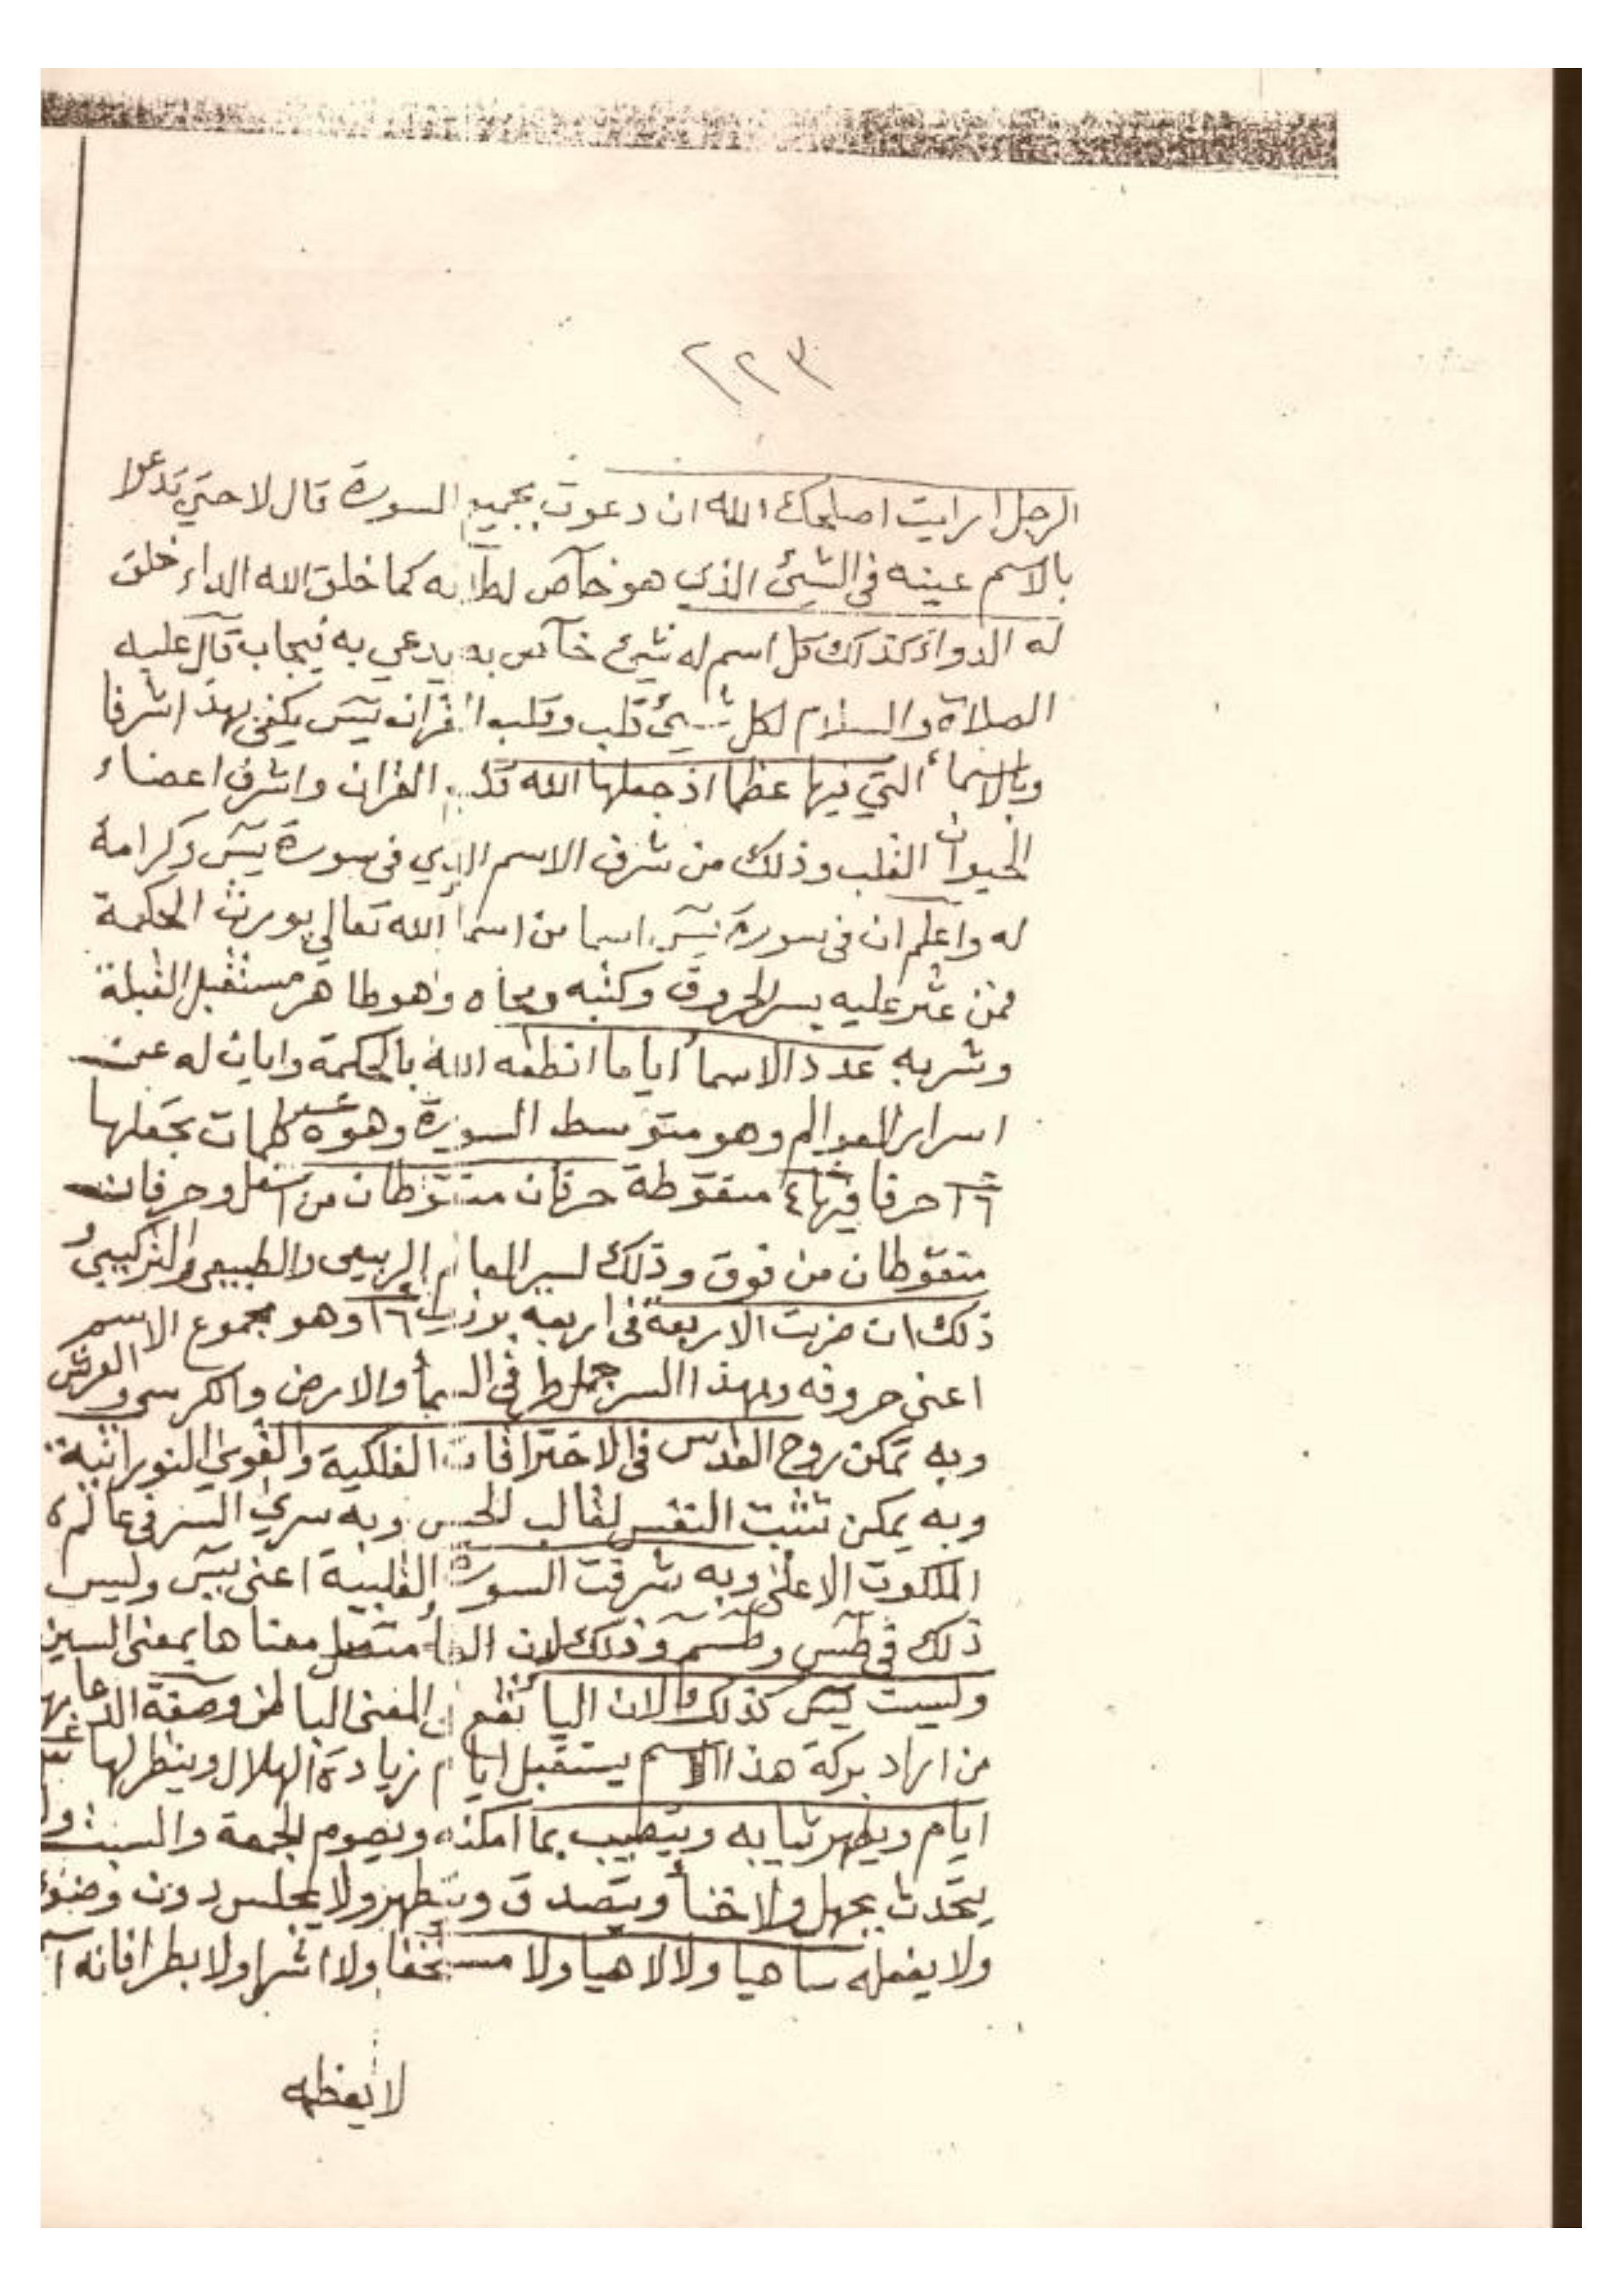 ٢٢٣
الرجل ارايت اصلحك الله ان دعوت بجميع السورة قال لا حتي تدعوا
بالاسم عينه في الشيئ الذي هو خاص لطلابه كما خلق الله الداء خلق
له الدواء كذلك كل اسم له شيئ خآص به يدعي به فيجاب قال عليه
الصلاة والسلام لكل شيئ قلب وقلب القران يس يكفي بهذا شرفا
وبالاسمأ التي فيها عظما اذ جعلها الله قلب القران واشرف اعضاء
الحيوان القلب وذلك من شرف الاسم الذي في سورة يس وكرامة
له واعلم ان في سورة يس اسما من اسمأ الله تعالي يورث الحكمة
فمن عثر عليه بسر الحروف وكتبه ومحاه وهو طاهر مستقبل القبلة
وشربه عدد الاسمأ اياما انطقه الله بالحكمة وابان له عن
اسرار العوالم وهو متوسط السورة وهو ٥ كلمات بجملها
١٦ حرفا فيها ٤ منقوطة حرفان منقوطان من اسفل وحرفان
منقوطان من فوق وذلك لسر العالم الربيعي والطبيعي والتركيبي و
ذلك ان ضربت الاربعة في اربعه ١٦ وهو مجموع الاسم
اعني حروفه وبهذا السر في السمأ والارض والكرسي والعرش
وبه تمكن روح القدس في الاختراقات الفلكية والقوي النورانية
وبه يمكن تثبت النفس لقالب الحس وبه سري السر في عالم
الملكوت الاعلي وبه شرفت السورة القلبية اعني يس وليس
ذلك في طس وطسم وذلك لان الطأ معناها بمعني السين
وليست يس كذلك لان اليأ تقع المعني الباطن وصفة الدعا بها
من اراد بركة هذا الاسم يستقبل ايام زيادة الهلال وينظر لها
ايام ويطهر ثيابه ويتطيب بما امكنه ويصوم الجمعة والسبت ولا
يتحدث بجهل ولا خنأ ويتصدق ويتطهر ولا يجلس دون وضوء
ولا يفعله ساهيا ولا لاهيا ولا مستخفا ولا اشرا ولا بطرا فانه
لا يعظه